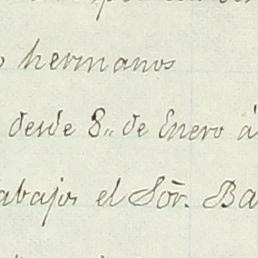 hermanos
desde 8,, de Enero á
abajos el Sõr. Ba